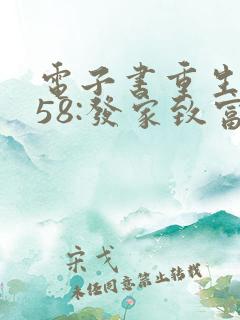 電子書重生
58:發家致富
宋戈
未经同意禁止转载